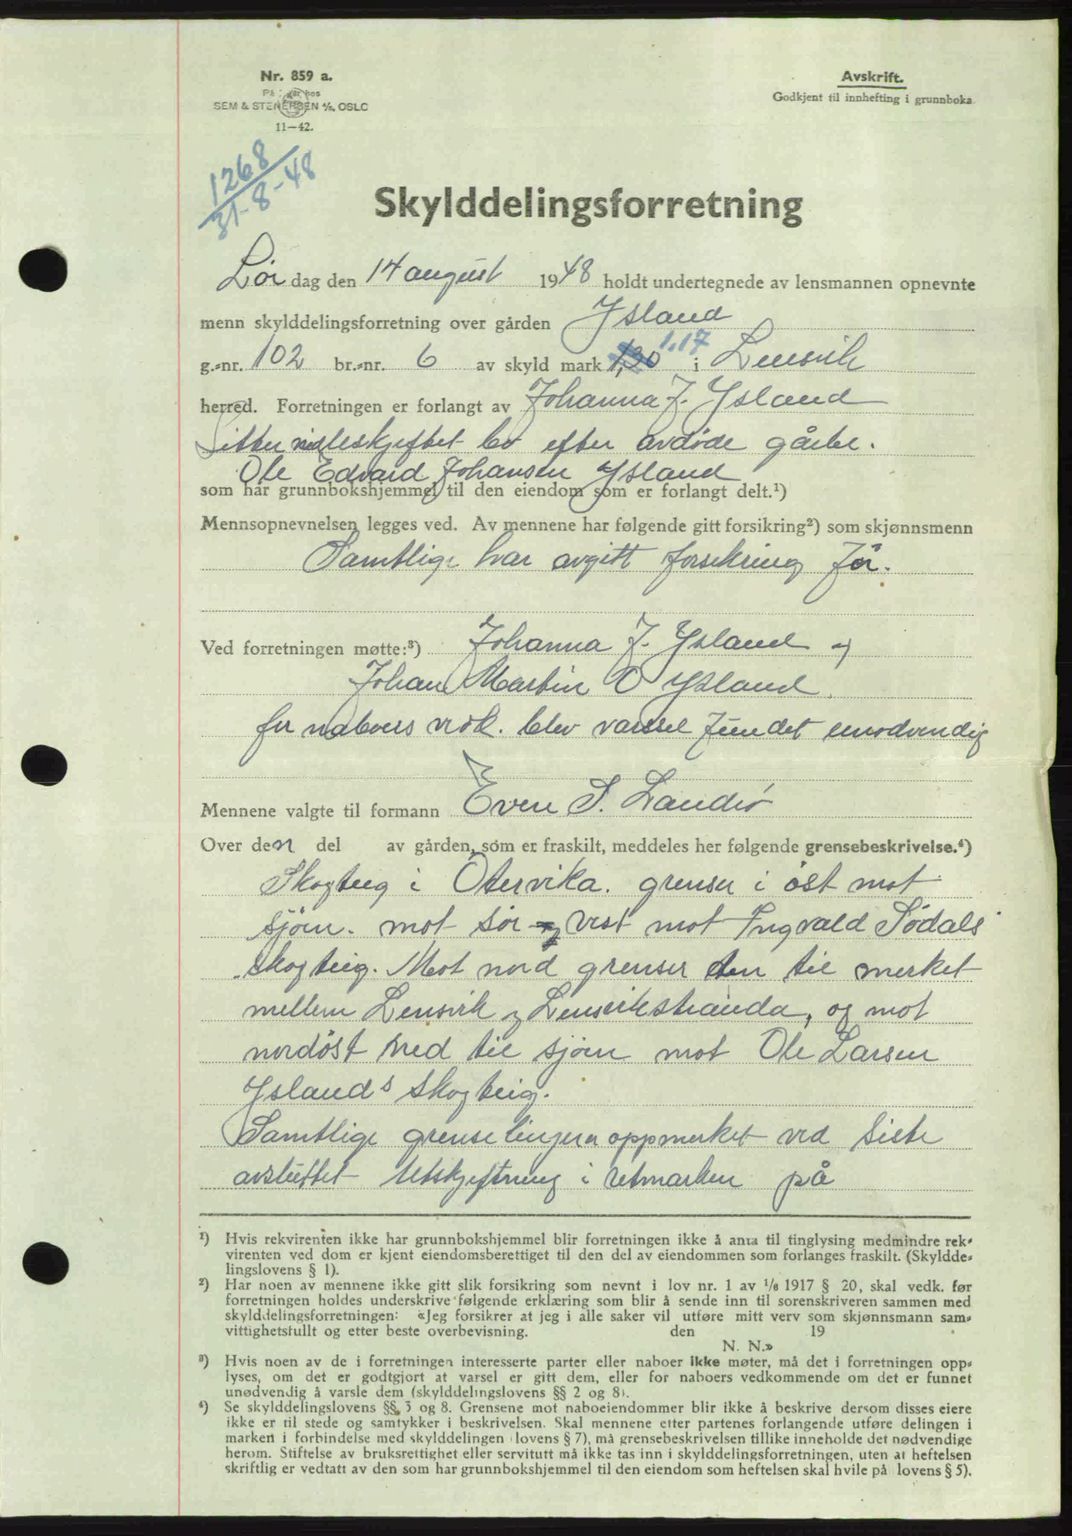 Nr. 859 a.
På lager hos
SEM & STENERSEN A/S, OSLO
11—42.
Avskrift.
Godkjent til innhefting i grunnboka
1268
31-8-48
Skylddelingsforretning
Lør dag den 14 august 1948 holdt undertegnede av lensmannen opnevnte
menn skylddelingsforretning over gården Ysland
g.-nr. 102 br.-nr. 6 av skyld mark 1,30 1.17 i Lensvik
herred. Forretningen er forlangt av Johanna J. Ysland
sitter i uskiftet bo efter avdøde gårbr.
Ole Edvard Johansen Ysland
som har grunnbokshjemmel til den eiendom som er forlangt delt.¹)
Mennsopnevnelsen legges ved. Av mennene har følgende gitt forsikring²) som skjønnsmenn
Samtlige har avgitt forsikring før.
Ved forretningen møtte:³) Johanna J. Ysland og
Johan Martin O Ysland.
for naboers vedk. blev varsel fundet unødvendig
Mennene valgte til formann Even S. Landrø
Over den del av gården, som er fraskilt, meddeles her følgende grensebeskrivelse.⁴)
Skogteig i Otervika. grenser i øst mot
sjøen. mot sør og vest mot Ingvald Sødals
skogteig. Mot nord grenser den til merket
mellem Lensvik og Lensvikstranda, og mot
nordøst ned til sjøen mot Ole Larsen
Yslands skogteig.
Samtlige grenselinjer er oppmerket ved siste
avsluttet utskiftning i utmarken på
¹) Hvis rekvirenten ikke har grunnbokshjemmel blir forretningen ikke å anta til tinglysing medmindre rek-
virenten ved dom er kjent eiendomsberettiget til den del av eiendommen som forlanges fraskilt. (Skyldde-
lingslovens § 1).
²) Har noen av mennene ikke gitt slik forsikring som nevnt i lov nr. 1 av 1/6 1917 § 20, skal vedk. før
forretningen holdes underskrive følgende erklæring som blir å sende inn til sorenskriveren sammen med
skylddelingsforretningen: «Jeg forsikrer at jeg i alle saker vil utføre mitt verv som skjønnsmann sam-
vittighetsfullt og etter beste overbevisning. den 19
N. N.»
³) Hvis noen av de i forretningen interesserte parter eller naboer ikke møter, må det i forretningen opp-
lyses, om det er godtgjort at varsel er gitt dem, eller for naboers vedkommende om det er funnet
unødvendig å varsle dem (skylddelingslovens §§ 2 og 8).
⁴) Se skylddelingslovens §§ 3 og 8. Grensene mot naboeiendommer blir ikke å beskrive dersom disses eiere
ikke er til stede og samtykker i beskrivelsen. Skal mennene etter partenes forlangende utføre delingen i
marken i forbindelse med skylddelingen (lovens § 7), må grensebeskrivelsen tillike inneholde det nødvendige
herom. Stiftelse av bruksrettighet eller servitutt må ikke tas inn i skylddelingsforretningen, uten at heftelsen
skriftlig er vedtatt av den som har grunnbokshjemmel til den eiendom som heftelsen skal hvile på (lovens § 5).